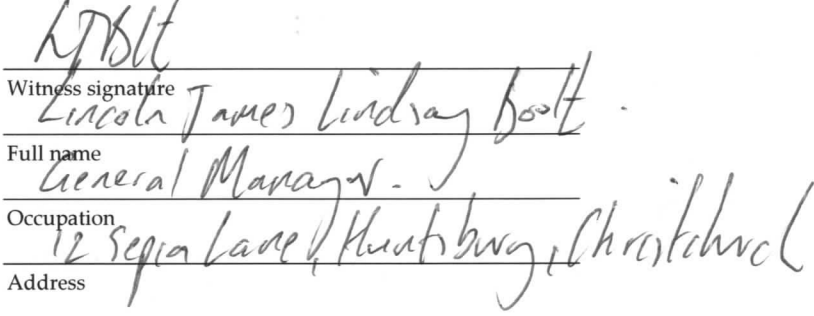 Witness signature
Lincoln James Lindsay Boolt.
Full name
General Manager.
Occupation
12 Sepia Lane, Huntsbury, Christchurch
Address